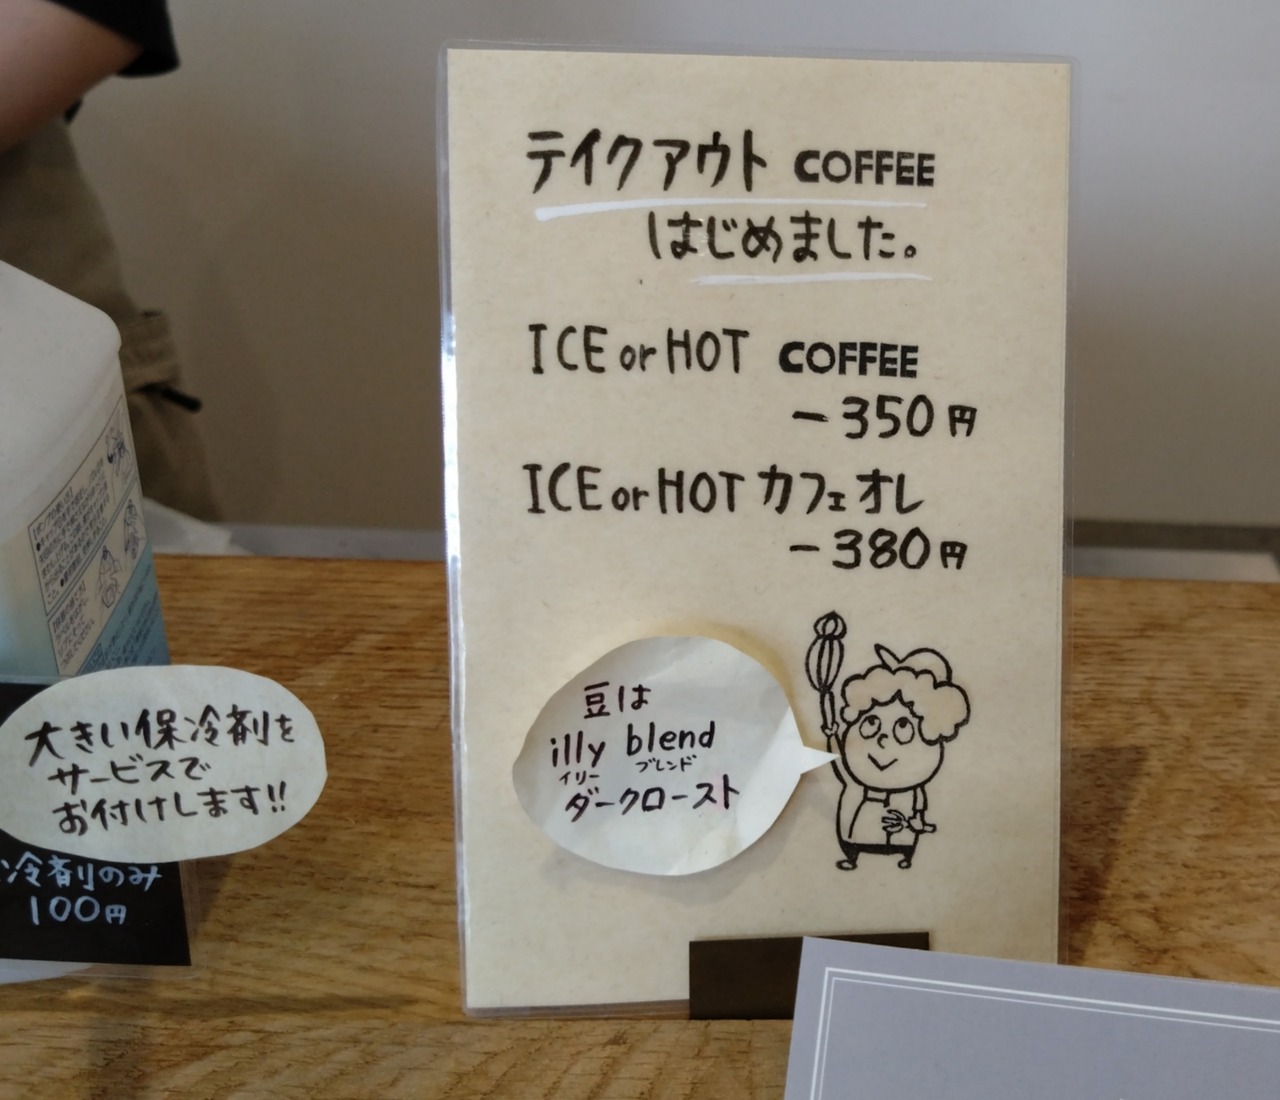 テイクアウト COFFEE
はじめました。
ICE or HOT COFFEE
-350円
ICE or HOT カフェオレ
-380円
豆は
illy blend
イリー ブレンド
ダークロースト
大きい保冷剤を
サービスで
お付けします!!
冷剤のみ
100円